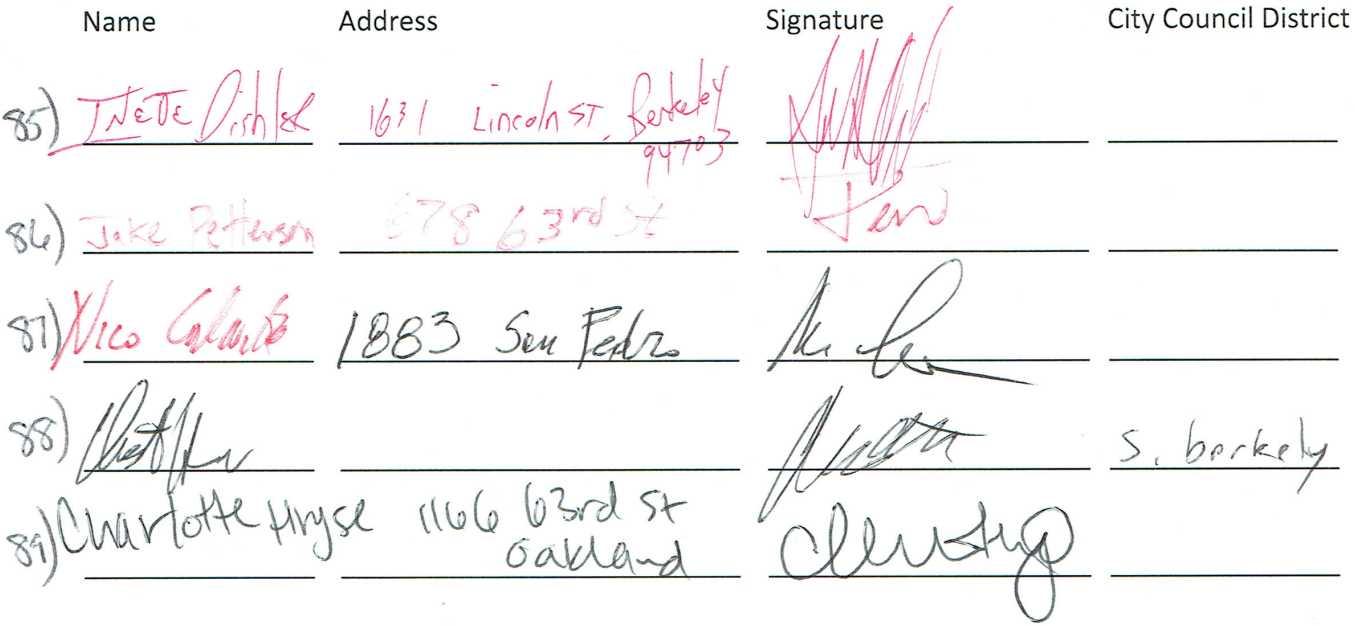 Name Address Signature City Council District
85) INETE Dishler 1631 Lincoln ST, Berkeley
94703
86) Jake Petterson 678 63rd St
87) Nico 1883 San Pedro
88) S. berkely
89) Charlotte Hryse 1166 63rd St
Oakland